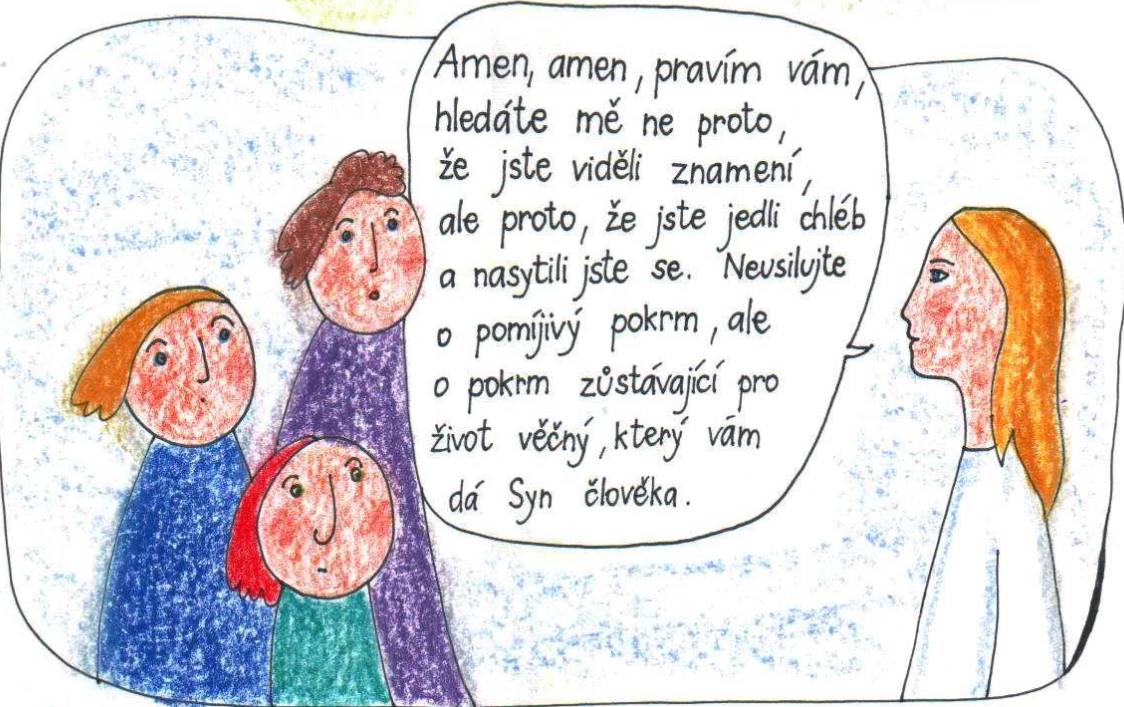 Amen, amen, pravím vám,
hledáte mě ne proto,
že jste viděli znamení,
ale proto, že jste jedli chléb
a nasytili jste se. Neusilujte
o pomíjivý pokrm, ale
o pokrm zůstávající pro
život věčný, který vám
dá Syn člověka.